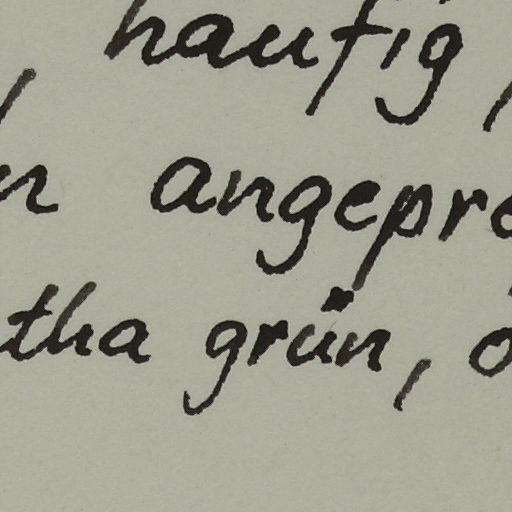 häufig
angepre
tha grün,